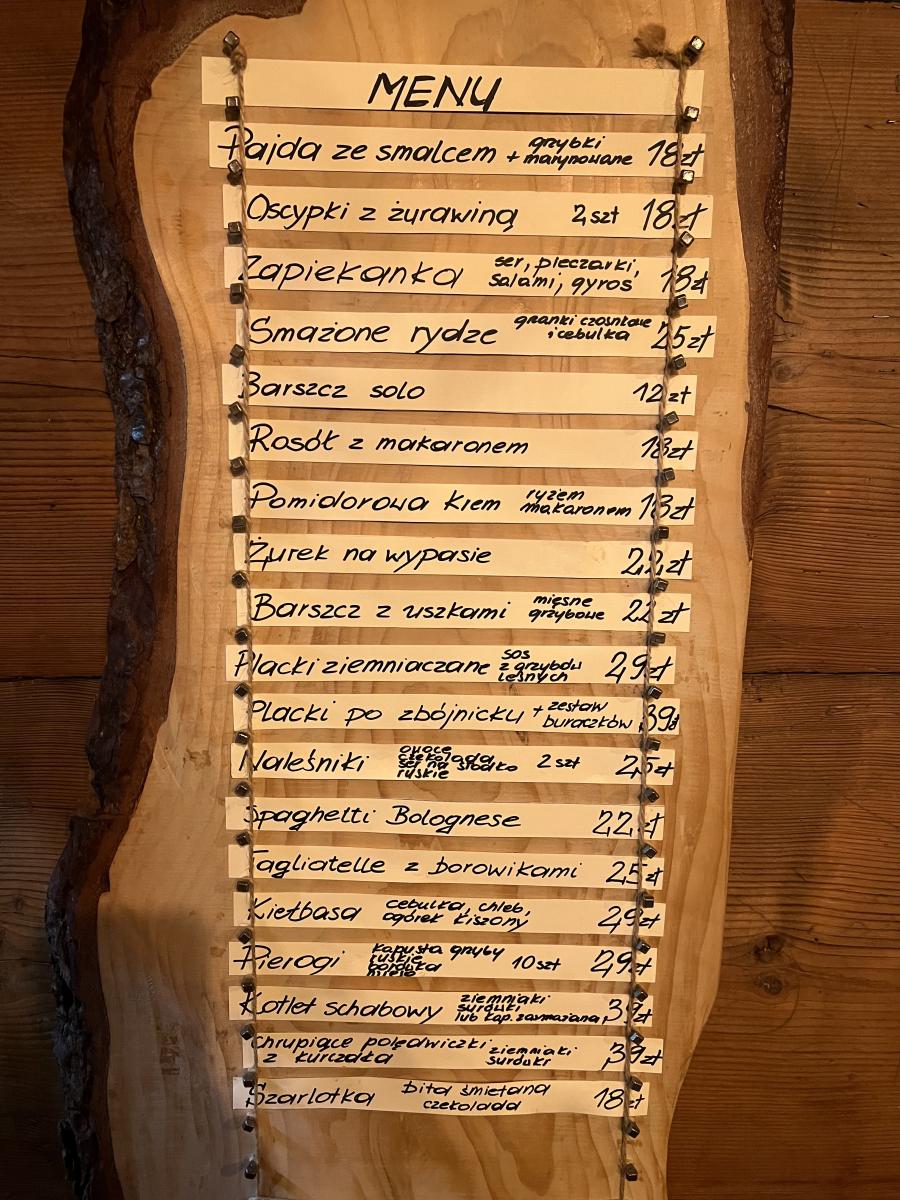 MENU
Pajda ze smalcem + grzybki marynowane 18zł
Oscypki z żurawiną 2szt 18zł
Zapiekanka ser, pieczarki, salami, gyros 18zł
Smażone rydze grzanki czosnkowe i cebulka 25zł
Barszcz solo 12zł
Rosół z makaronem 18zł
Pomidorowa krem ryżem makaronem 18zł
Żurek na wypasie 22zł
Barszcz z uszkami mięsne grzybowe 22zł
Placki ziemniaczane sos z grzybów leśnych 29zł
Placki po zbójnicku + zestaw buraczków 39zł
Naleśniki owoce czekolada ser na słodko ruskie 2szt 25zł
Spaghetti Bolognese 22zł
Tagliatelle z borowikami 25zł
Kiełbasa cebulka, chleb, ogórek kiszony 29zł
Pierogi kapusta grzyby ruskie mięso 10szt 29zł
Kotlet schabowy ziemniaki surówki lub kap. zasmażana 39zł
Chrupiące polędwiczki z kurczaka ziemniaki surówki 39zł
Szarlotka bita śmietana czekolada 18zł